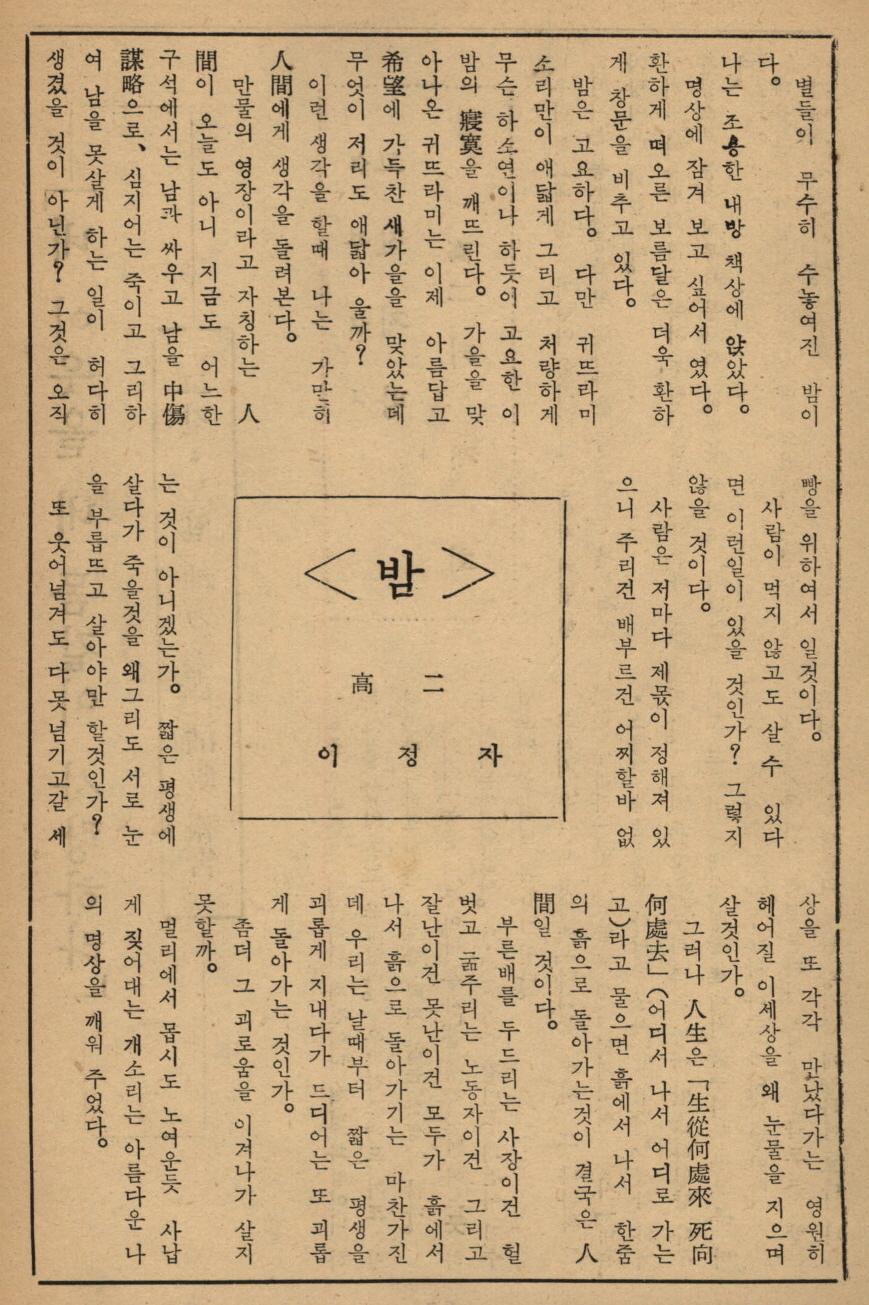 별들이 무수히 수놓여진 밤이
다。
나는 조용한 내방 책상에 앉았다。
명상에 잠겨 보고 싶어서 였다。
환하게 떠오른 보름달은 더욱 환하
게 창문을 비추고 있다。
밤은 고요하다。 다만 귀뜨라미
소리만이 애닯게 그리고 처량하게
무슨 하소연이나 하듯이 고요한 이
밤의 寢寞을 깨뜨린다。 가을을 맞
아나온 귀뜨라미는 이제 아름답고
希望에 가득찬 새가을을 맞았는데
무엇이 저리도 애닯아 울까?
이런 생각을 할때 나는 가만히
人間에게 생각을 돌려본다。
만물의 영장이라고 자칭하는 人
間이 오늘도 아니 지금도 어느한
구석에서는 남과 싸우고 남을 中傷
謀略으로、심지어는 죽이고 그리하
여 남을 못살게 하는 일이 허다히
생겼을 것이 아닌가? 그것은 오직
빵을 위하여서 일것이다。
사람이 먹지 않고도 살 수 있다
면 이런일이 있을 것인가? 그렇지
않을 것이다。
사람은 저마다 제몫이 정해져 있
으니 주리건 배부르건 어찌할바 없
<밤>
高二
이정자
는 것이 아니겠는가。 짧은 평생에
살다가 죽을것을 왜그리도 서로 눈
을 부릅뜨고 살아야만 할것인가?
또 웃어넘겨도 다못넘기고갈 세
상을 또 각각 만났다가는 영원히
헤어질 이세상을 왜 눈물을 지으며
살것인가。
그러나 人生은「生從何處來 死向
何處去」(어디서 나서 어디로 가는
고)라고 물으면 흙에서 나서 한줌
의 흙으로 돌아가는것이 결국은 人
間일 것이다。
부른배를 두드리는 사장이건 헐
벗고 굶주리는 노동자이건 그리고
잘난이건 못난이건 모두가 흙에서
나서 흙으로 돌아가기는 마찬가진
데 우리는 날때부터 짧은 평생을
괴롭게 지내다가 드디어는 또 괴롭
게 돌아가는 것인가。
좀더 그 괴로움을 이겨나가 살지
못할까。
멀리에서 몹시도 노여운듯 사납
게 짖어대는 개소리는 아름다운 나
의 명상을 깨워 주었다。